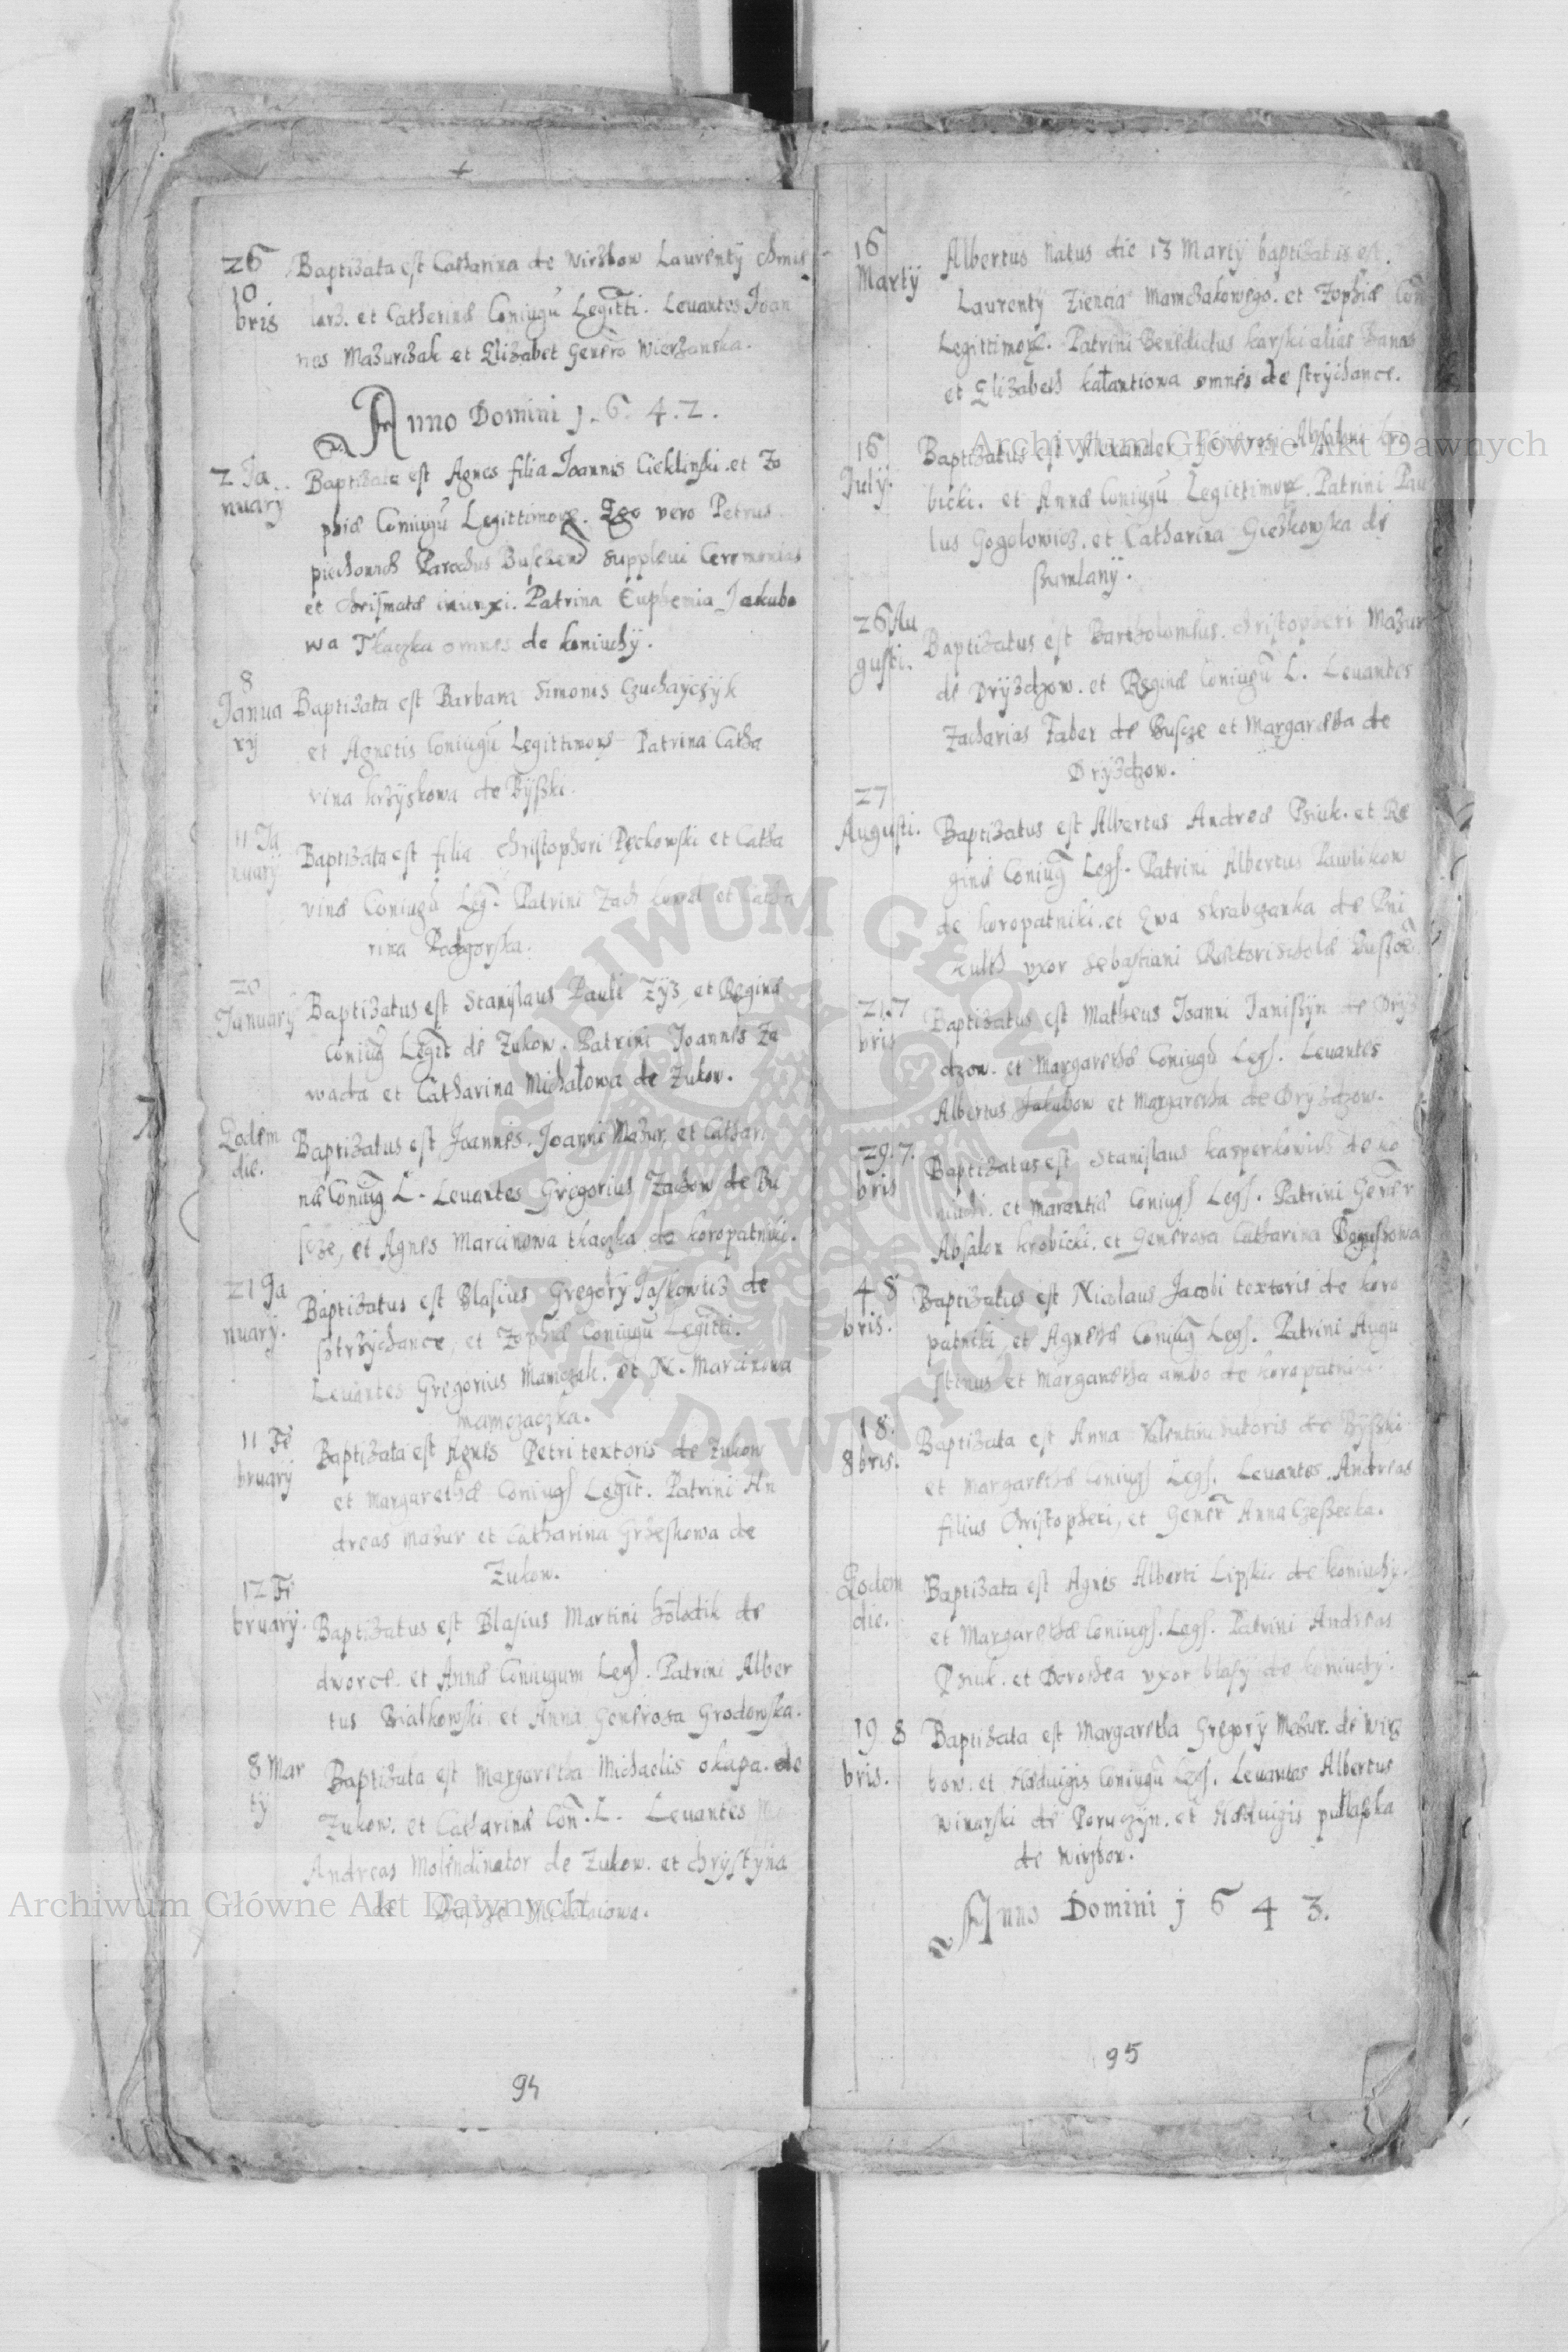 26
10
bris
Baptizata est Catharina de Wirzbow Laurentÿ Chmie
larz. et Catherinæ Coniugũ Legitti. Leuantes Joan
nes Mazurizak et Elizabet Genero Wierzanska.
Anno Domini j. 6. 4. 2.
2 Ja
nuarÿ
Baptizata est Agnes filia Joannis Cieklinski et Zo
phiæ Coniugũ Legittimorũ. Ego vero Petrus
piechowich Parochus Buscen supleui Ceremonias
et chrismate inunxi. Patrina Euphemia Jakubo
wa Tkaczka omnes de koniuchÿ.
8
Janua
rÿ
Baptizata est Barbara Simonis Czuchayczyk
et Agnetis Coniugũ Legittimorũ Patrina Catha
rina krzÿskowa de Bÿszki.
11 Ja
nuarÿ
Baptizata est filia Christopheri Pęckowski et Catha
rinæ Coniugũ Leg. Patrini Zach kowal et Catha
rina Podgorska.
20
Januarÿ
Baptizatus est Stanislaus Pauli Zÿz, et Reginæ
Coniug Legit de Zukow. Patrini Joannes Za
wada et Catharina Michałowa de Zukow.
Eodem
die.
Baptizatus est Joannes. Joanni Mazur, et Cathari
næ Coniug L. Leuantes Gregorius Zachow de Bu
scze, et Agnes Marcinowa tkaczka de koropatniki.
21 Ja
nuarÿ.
Baptizatus est Blasius Gregorÿ Jaskowicz de
strzÿchance, et Zophiæ Coniugũ Legitti.
Leuantes Gregorius Mamczak. et N. Marcinowa
mamczaczka.
11 Fe
bruarÿ
Baptizata est Agnes Petri textoris de Zukow
et Margarethæ Coniug Legit. Patrini An
dreas Mazur et Catharina Grzeskowa de
Zukow.
12 Fe
bruarÿ.
Baptizatus est Blasius Martini hołodik de
dworce. et Annæ Coniugum Leg. Patrini Alber
tus Białkowski et Anna Generosa Grodowska.
8 Mar
tÿ
Baptizata est Margaretha Michaelis okapa. de
Zukow. et Catharinæ Con. L. Leuantes
Andreas Molendinator de Zukow. et Chrÿstÿna
de Buscze Mikołaiowa.
94
16
Martÿ
Albertus Natus die 13 Martÿ baptizatus est.
Laurentÿ Ziencia Mamczakowego. et Zophiæ Con
Legittimorũ. Patrini Benedictus karski alias Banas
et Elizabeth kałantiowa omnes de strÿchance.
16
Julÿ.
Baptizatus est Alexander Generosi Absaloni kro
bicki. et Annæ Coniugũ Legittimorũ. Patrini Pau
lus Gogolowicz. et Catharina Gieskowska de
szumlanÿ.
26 Au
gusti.
Baptizatus est Bartholomeus. Christopheri Mazur
de Drÿzdzow. et Reginæ Coniugũ L. Leuantes
Zacharias Faber de Buscze et Margaretha de
Drÿzdzow.
27
Augusti.
Baptizatus est Albertus Andreæ Psiuk. et Re
ginæ Coniug Legs. Patrini Albertus Pawlikow
de koropatniki. et Ewa skrabczanka de Bni
uxor Sebastiani Rectoris scholæ
21. 7
bris
Baptizatus est Matheus Joanni Janiszÿn de Drÿz
dzow. et Margarethæ Coniugũ Legs. Leuantes
Albertus Jakubow et Margaretha de Drÿzdzow.
29. 7.
bris
Baptizatus est Stanislaus kasperkowich de ko
niuchi. et Coniugs Legs. Patrini Gener
Absalon krobicki. et Generosa Catharina Boguszowa
4 8
bris.
Baptizatus est Nicolaus Jacobi textoris de koro
patniki, et Agnethæ Coniug Legs. Patrini Augu
stinus et Margaretha ambo de koropatniki.
18.
8bris.
Baptizata est Anna Valentini sutoris de Bÿszki
et Margarethæ Coniugs Legs. Leuantes. Andreas
filius Christopheri, et Gener Anna Czeszecka.
Eodem
die.
Baptizata est Agnes Alberti Lipski. de koniuchÿ.
et Margarethæ Coniugs. Legs. Patrini Andreas
Psiuk. et Dorothea vxor blasÿ de koniuchÿ.
19 8
bris.
Baptizata est Margaretha Gregorÿ Mazur. de Wirz
bow. et Hæduigis Coniugũ Legs. Leuantes Albertus
Winarski de Poruczÿn. et Hæduigis
de Wirzbow.
Anno Domini j 6 4 3.
95
Archiwum Główne Akt Dawnych
Archiwum Główne Akt Dawnych
ARCHIWUM GŁÓWNE AKT DAWNYCH